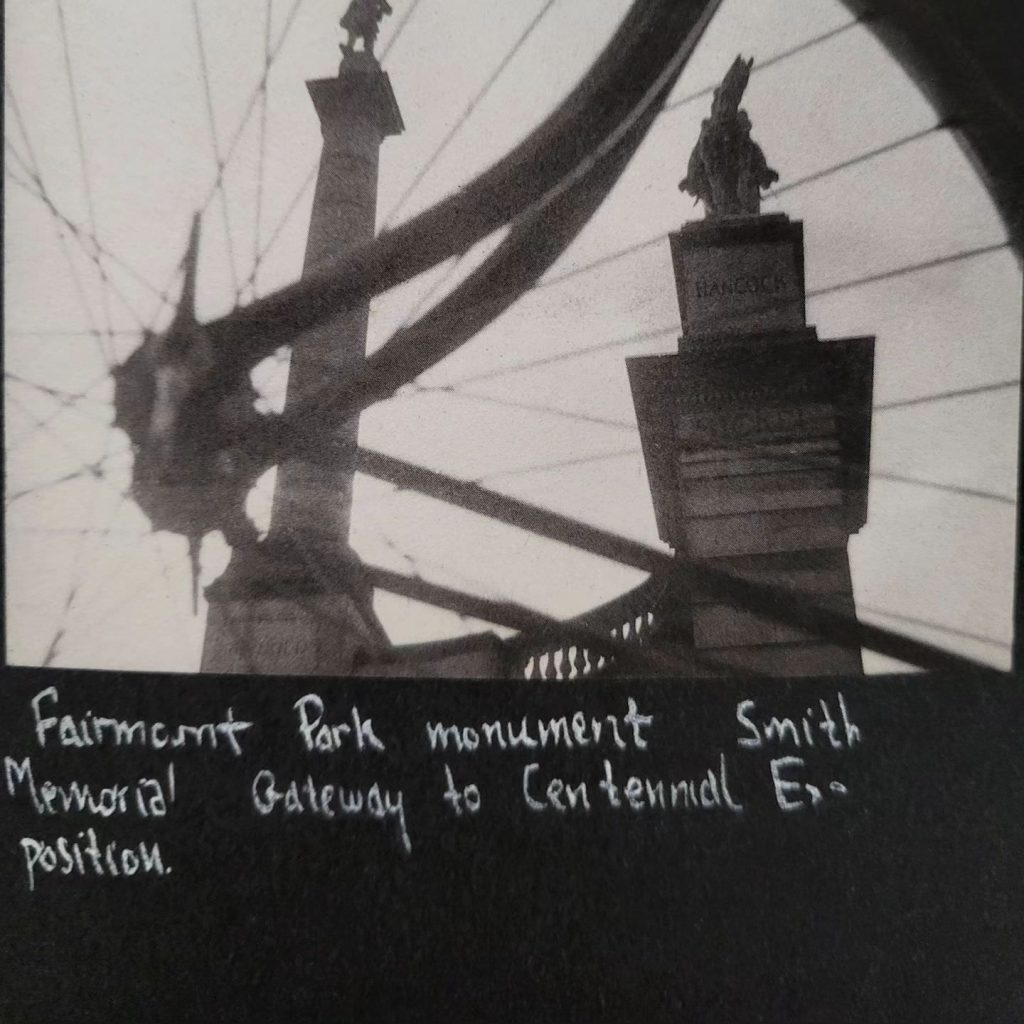 HANCOCK
Fairmount Park monument Smith
Memorial Gateway to Centennial Ex-
position.